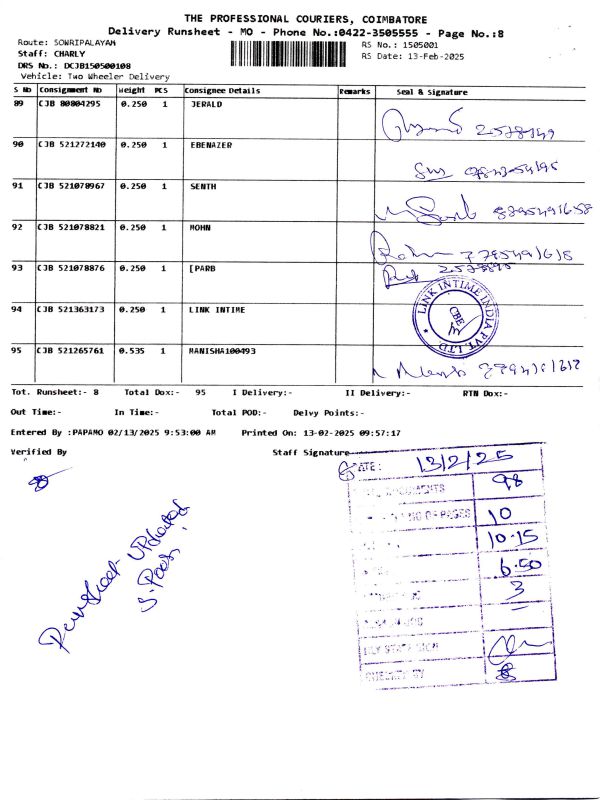 THE PROFESSIONAL COURIERS, COIMBATORE
Delivery Runsheet - MO - Phone No.:0422-3505555 - Page No.:8
Route: SOWRIPALAYAM
Staff: CHARLY
DRS No.: DCJB150500108
Vehicle: Two Wheeler Delivery
RS No.: 1505001
RS Date: 13-Feb-2025
S No Consignment No Weight PCS Consignee Details Remarks Seal & Signature
89 CJB 80804295 0.250 1 JERALD
90 CJB 521272140 0.250 1 EBENAZER
91 CJB 521070967 0.250 1 SENTH
92 CJB 521078821 0.250 1 MOHN
93 CJB 521078876 0.250 1 [PARB
94 CJB 521363173 0.250 1 LINK INTIME
LINK INTIME INDIA PVT. LTD
CBE
95 CJB 521265761 0.535 1 MANISHA100493
Tot. Runsheet:- 8 Total Dox:- 95 I Delivery:- II Delivery:- RTN Dox:-
Out Time:- In Time:- Total POD:- Delvy Points:-
Entered By :PAPAMO 02/13/2025 9:53:00 AM Printed On: 13-02-2025 09:57:17
Verified By Staff Signature
DATE: 13/2/25
98
NO OF PAGES 10
10.15
6.50
3
-
CHECKED BY
Runsheet Uploaded